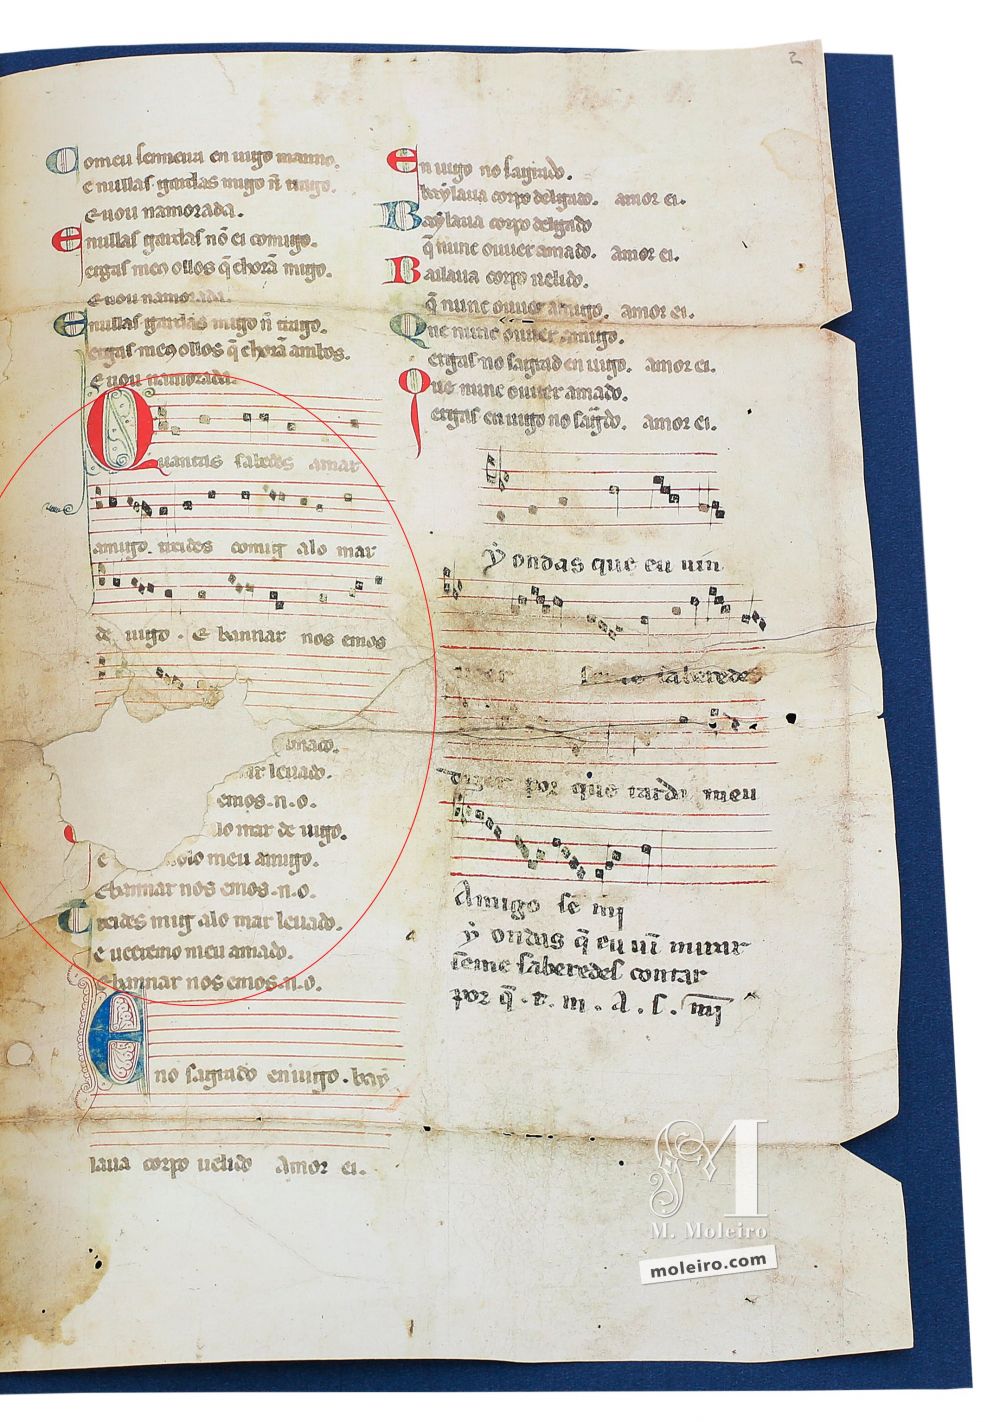 2
Comeu senneira en uigo manno.
e nullas gardas migo ñ trago.
E uou namorada.
E nullas gardas nõ ei comigo.
ergas meos ollos q̃ chorã migo.
E uou namorada.
E nullas gardas migo ñ trago.
ergas meos ollos q̃ chorã ambos.
E uou namorada.
Quantas sabedes amar
amigo. treides comig alo mar
de uigo. E bannar nos emos
mado.
ar leuado.
emos.n.o.
lo mar de uigo.
e olo meu amigo.
E bannar nos emos.n.o.
Treides mig alo mar leuado.
e ueeremo meu amado.
E bannar nos emos.n.o.
E no sagrado en uigo. bay
laua corpo uelido Amor ei.
En uigo no sagrado.
baylaua corpo delgado. amor ei.
Baylaua corpo delgado
q̃ nunc ouuer amado. amor ei.
Bailaua corpo uelido.
q̃ nunc ouuer amigo. amor ei.
Que nunc ouuer amigo.
ergas no sagrad en uigo. amor ei.
Que nunc ouuer amado.
ergas en uigo no sag̃do. amor ei.
Ay ondas que eu uin
ueer se me saberedes
dizer por que tarda meu
Amigo se mĩ
Ay ondas q̃ eu uĩ mirar
se me saberedes contar
por q̃ . t . m . A . s . mĩ
M
M. Moleiro
moleiro.com